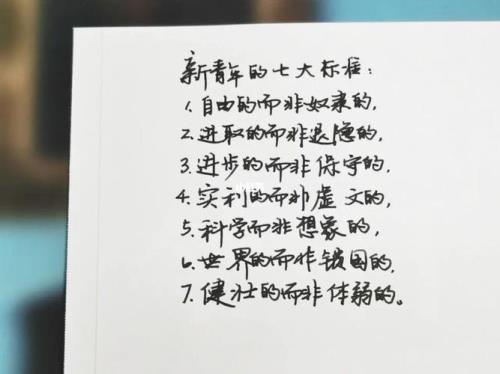 新青年的七大标准：
1.自由的而非奴隶的，
2.进取的而非退隐的，
3.进步的而非保守的，
4.实利的而非虚文的，
5.科学而非想象的，
6.世界的而非锁国的，
7.健壮的而非体弱的。